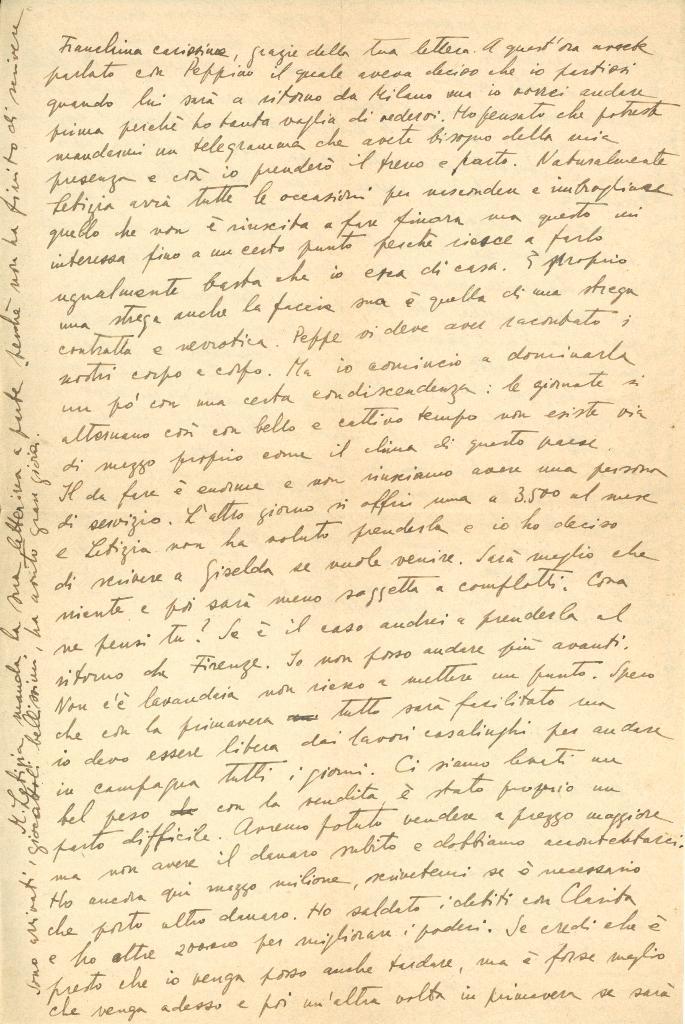 Franchina carissima, grazie della tua lettera. A quest'ora avrete
parlato con Peppino il quale aveva deciso che io partissi
quando lui sarà a ritorno da Milano ma io vorrei andare
prima perchè ho tanta voglia di vedervi. Ho pensato che potreste
mandarmi un telegramma che avete bisogno della mia
presenza e così io prenderò il treno e parto. Naturalmente
Letizia avrà tutte le occasioni per nascondere e imbrogliare
quello che non è riuscita a fare finora ma questo mi
interessa fino a un certo punto perchè riesce a farlo
ugualmente basta che io esca di casa. È proprio
una strega anche la faccia sua è quella di una strega
contratta e nevrotica. Peppe vi deve aver raccontato i
nostri corpo a corpo. Ma io comincio a dominarla
un pò con una certa condiscendenza: le giornate si
alternano così con bello e cattivo tempo non esiste via
di mezzo proprio come il clima di questo paese.
Il da fare è enorme e non riusciamo avere una persona
di servizio. L'altro giorno si offrì una a 3.500 al mese
e Letizia non ha voluto prenderla e io ho deciso
di scrivere a Giselda se vuole venire. Sarà meglio che
niente e poi sarà meno soggetta a complotti. Cosa
ne pensi tu? Se è il caso andrei a prenderla al
ritorno da Firenze. Io non posso andare più avanti.
Non c'è lavandaia non riesco a mettere un punto. Spero
che con la primavera tutto sarà facilitato ma
io devo essere libera dai lavori casalinghi per andare
in campagna tutti i giorni. Ci siamo levati un
bel peso con la vendita è stato proprio un
parto difficile. Avremo potuto vendere a prezzo maggiore
ma non avere il danaro subito e dobbiamo accontentarci.
Ho ancora qui mezzo milione, scrivetemi se è necessario
che porto altro danaro. Ho saldato i debiti con Clarita
e ho oltre 200000 per migliorare i poderi. Se credi che è
presto che io venga posso anche tardare, ma è forse meglio
che venga adesso e poi un'altra volta in primavera se sarà
M. Letizia manda la sua letterina a parte perchè non ha finito di scrivere
Sono arrivati i giocattoli bellissimi, ha avuto gran gioia.